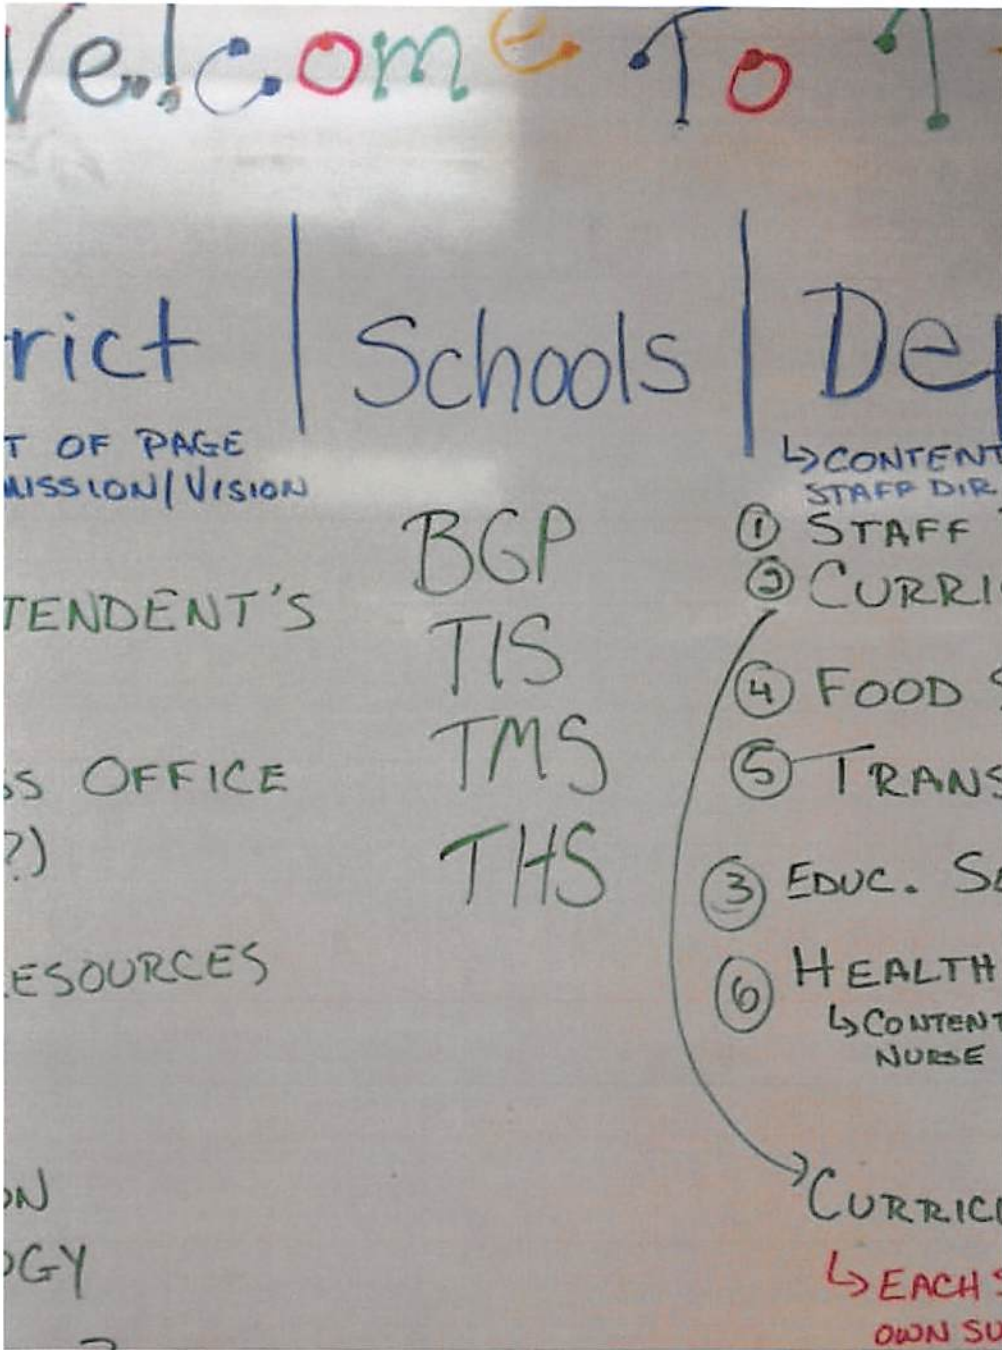 Welcome To T
rict | Schools | Dep
T OF PAGE
MISSION/VISION
TENDENT'S
SS OFFICE
?)
ESOURCES
ON
OGY
BGP
TIS
TMS
THS
↳ CONTENT
STAFF DIR.
① STAFF
② CURRI
④ FOOD S
⑤ TRANS
③ EDUC. SE
⑥ HEALTH
↳ CONTENT
NURSE
CURRICU
↳ EACH S
OWN SU